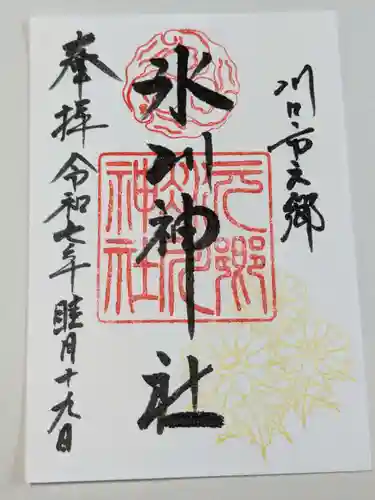 川口市元郷
氷川神社
元郷
氷川
神社
奉拝
令和七年睦月十九日